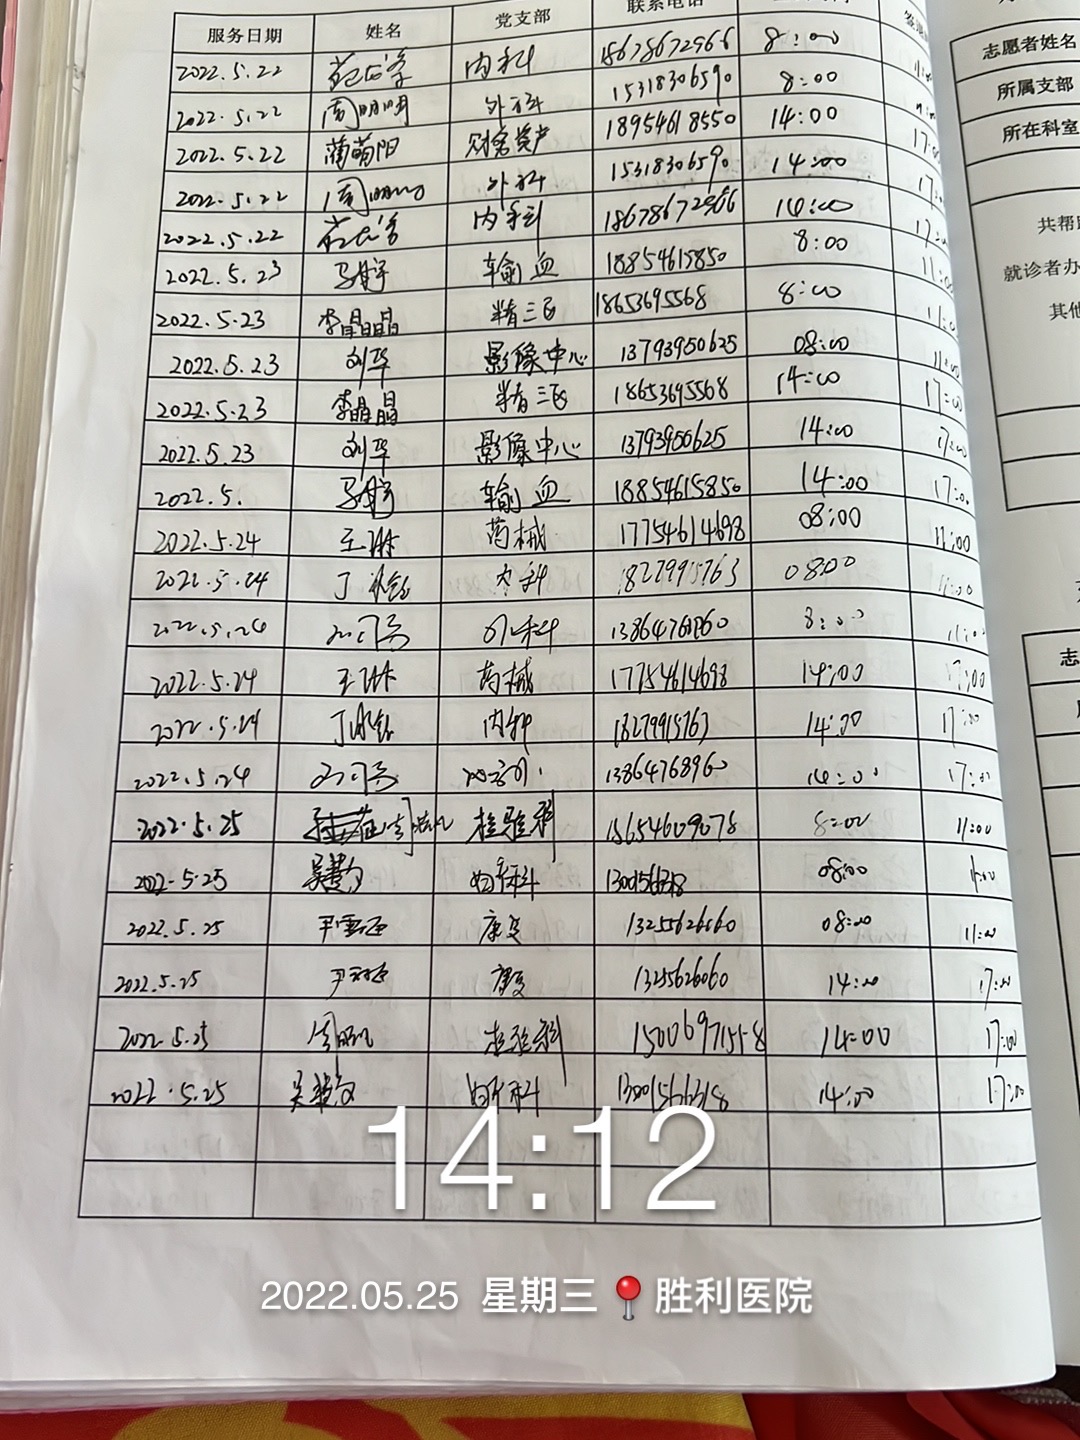 服务日期 姓名 党支部 联系电话
2022.5.22 内科 18678672966 8:00
2022.5.22 周明明 外科 15318306590 8:00
2022.5.22 蔺萌阳 财务资产 18954618550 14:00 17:00
2022.5.22 周明明 外科 15318306590 14:00 17:00
2022.5.22 内科 18678672966 14:00 17:00
2022.5.23 输血 18854615850 8:00 11:00
2022.5.23 李晶晶 精三民 18653695568 8:00 11:00
2022.5.23 刘华 影像中心 13793950625 08:00 11:00
2022.5.23 李晶晶 精三民 18653695568 14:00 17:00
2022.5.23 刘华 影像中心 13793950625 14:00 17:00
2022.5. 输血 18854615850 14:00 17:00
2022.5.24 王琳 药械 17754614698 08:00 11:00
2022.5.24 丁 内科 18279915763 0800 11:00
2022.5.24 外科 8:00 11:00
2022.5.24 王琳 药械 17754614698 14:00 17:00
2022.5.24 丁 内科 18279915763 14:00 17:00
2022.5.24 13864768960 14:00 17:00
2022.5.25 检验科 18654609078 8:00 11:00
2022.5.25 吴慧 妇产科 08:00 11:00
2022.5.25 尹雪 康复 13255626060 08:00 11:00
2022.5.25 尹 康复 13255626060 14:00 17:00
2022.5.25 周 检验科 15006971558 14:00 17:00
2022.5.25 吴 妇产科 13001566318 14:00 17:00
志愿者姓名
所属支部
所在科室
就诊者办
14:12
2022.05.25 星期三 胜利医院